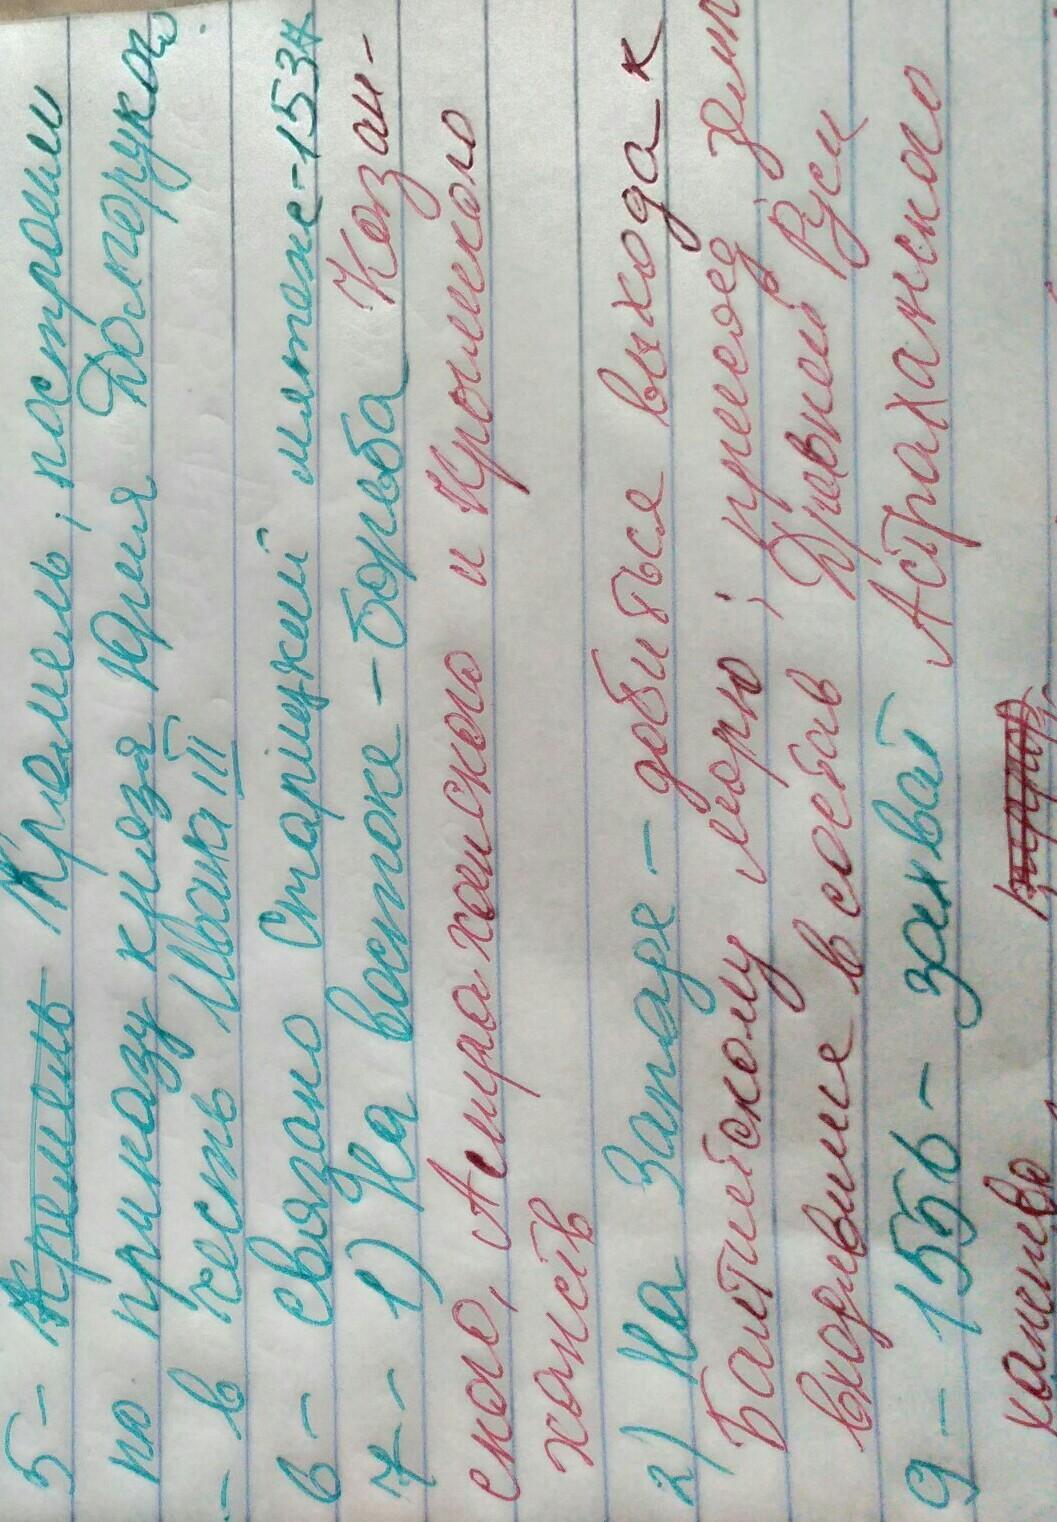 5- Кремль Кремль, построено
по приказу князя Юрия Долгоруког
- в честь Ивана III
6 - связано Старицкий мятеже-1537
7-- 1) На востоке - борьба Казан-
ского, Астраханского и Крымского
ханств
2) На Западе - добиться выхода к
Балтийскому морю; присоед земл
входившие в состав Древней Руси
9 - 1556 - захват Астраханского
ханства